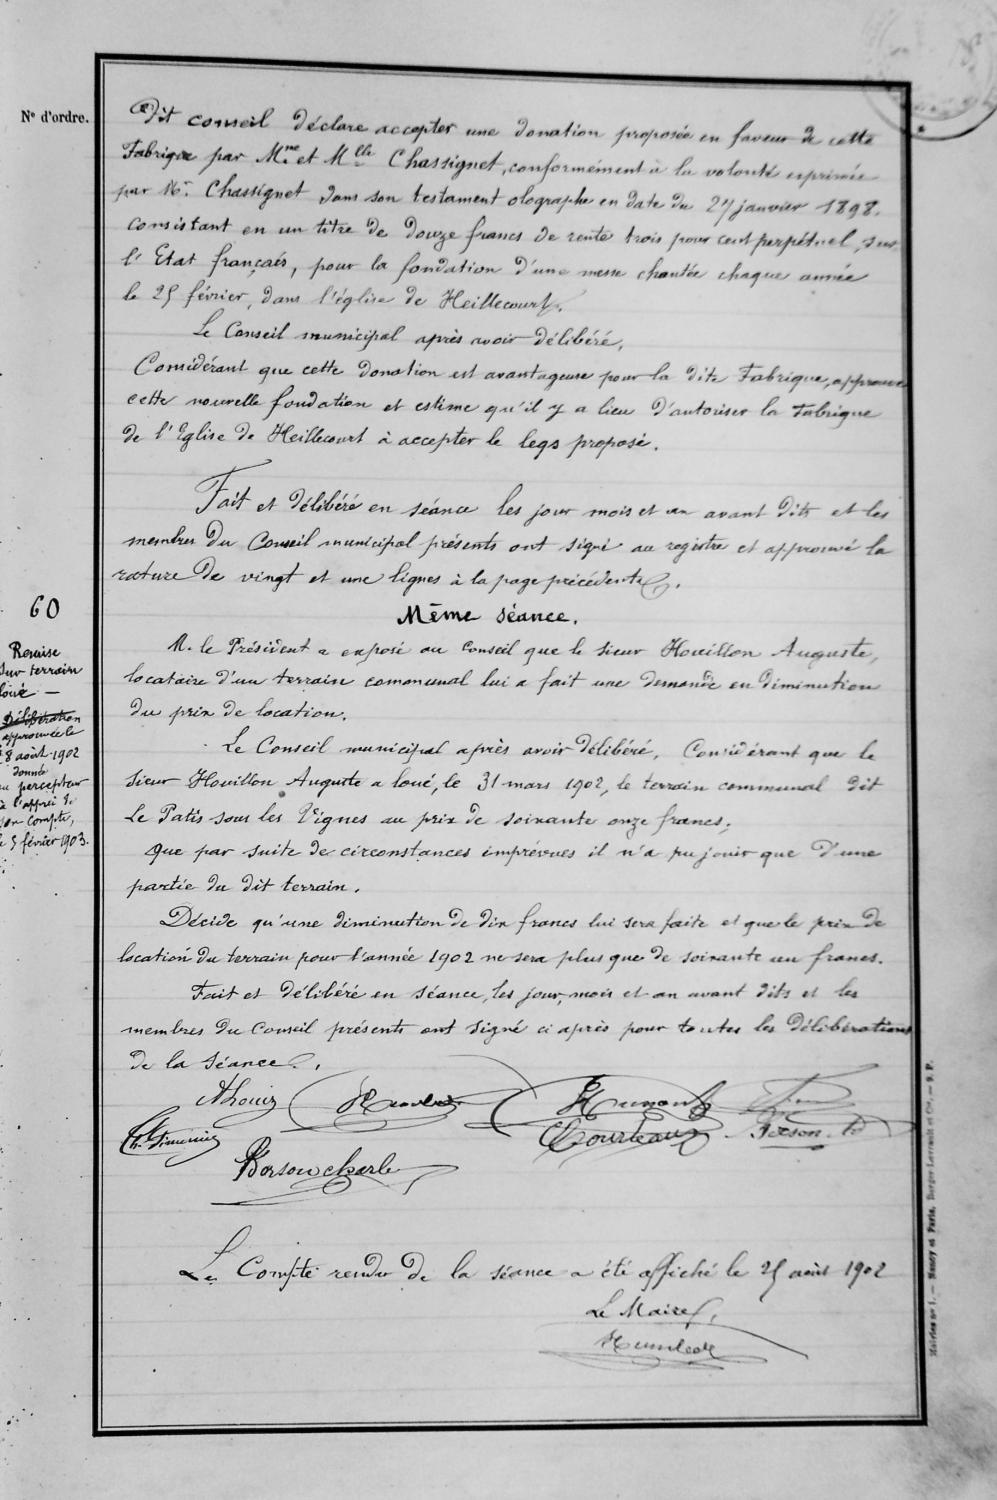 N° d'ordre.
Dit conseil déclare accepter une donation proposée en faveur de cette
Fabrique par Mme et Mlle Chassignet, conformément à la volonté exprimée
par Mr. Chassignet dans son testament olographe en date du 27 janvier 1898.
consistant en un titre de douze francs de rente trois pour cent perpétuel, sur
l'Etat français, pour la fondation d'une messe chantée chaque année
le 25 février, dans l'église de Heillecourt.
Le Conseil municipal après avoir délibéré,
Considérant que cette donation est avantageuse pour la dite Fabrique, approuve
cette nouvelle fondation et estime qu'il y a lieu d'autoriser la Fabrique
de l'Eglise de Heillecourt à accepter le legs proposé.
Fait et délibéré en séance les jour mois et an avant dits et les
membres du Conseil municipal présents ont signé au registre et approuvé la
rature de vingt et une lignes à la page précédente.
60
Même séance.
Remise
sur terrain
loué —
Délibération
approuvée le
8 août 1902
donné
au percepteur
à l'appui de
son compte,
le 5 février 1903.
M. le Président a exposé au Conseil que le sieur Houillon Auguste,
locataire d'un terrain communal lui a fait une demande en diminution
du prix de location.
Le Conseil municipal après avoir délibéré, Considérant que le
sieur Houillon Auguste a loué, le 31 mars 1902, le terrain communal dit
Le Patis sous les Vignes au prix de soixante onze francs;
Que par suite de circonstances imprévues il n'a pu jouir que d'une
partie du dit terrain.
Décide qu'une diminution de dix francs lui sera faite et que le prix de
location du terrain pour l'année 1902 ne sera plus que de soixante un francs.
Fait et délibéré en séance, les jour, mois et an avant dits et les
membres du Conseil présents ont signé ci après pour toutes les délibérations
de la séance.
Courteaux
Person
Borson charle
Le Compte rendu de la séance a été affiché le 25 août 1902
Le Maire,
Mairies n° 1. — Nancy et Paris, Berger-Levrault et Cie. — S. P.